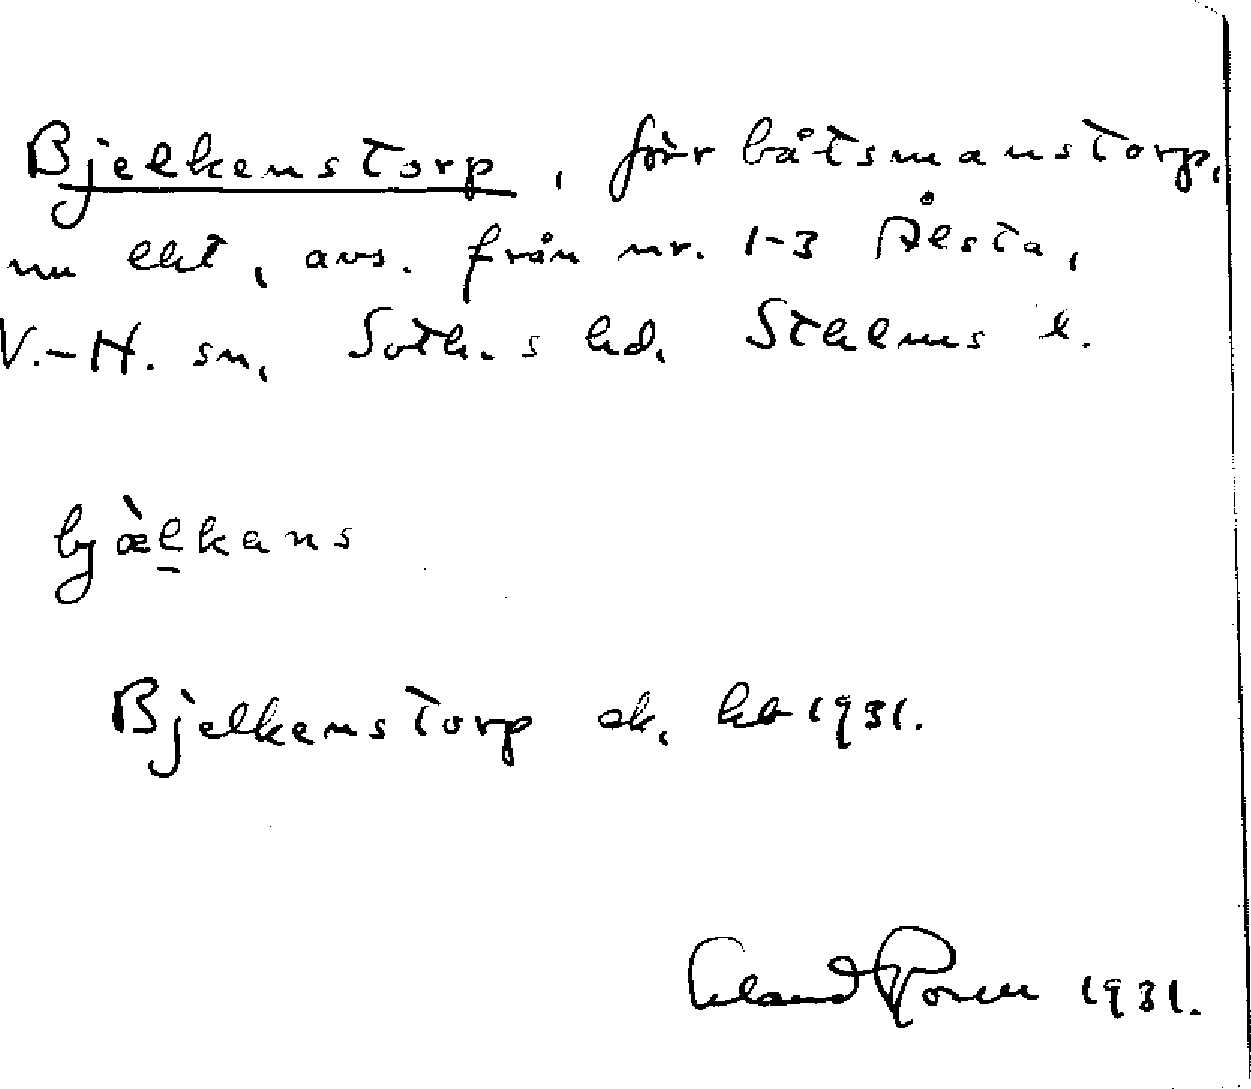 Bjelkenstorp, förr båtsmanstorp,
nu lht, avs. från nr. 1-3 Ålsta,
V.-H. sn, Soth.s hd, Sthlms l.
bjæ̀l̠kans
Bjelkenstorp ek, kb 1931.
Erland Rosell 1931.